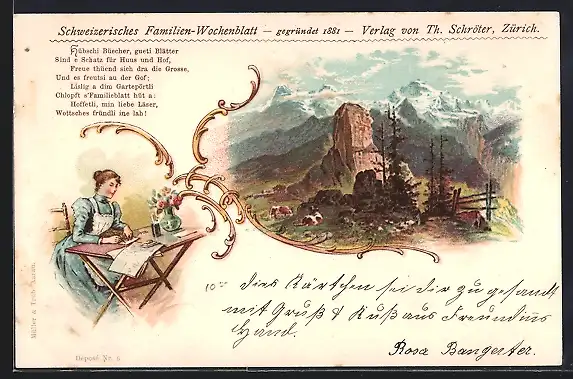 Schweizerisches Familien-Wochenblatt — gegründet 1881 — Verlag von Th. Schröter, Zürich.
Hübschi Büecher, gueti Blätter
Sind e Schatz für Huus und Hof,
Freue thüend sich dra die Grosse,
Und es freutsi au der Gof;
Lislig a dim Gartepörtli
Chlopft s'Familieblatt hüt a:
Hoffetli, min liebe Läser,
Wettsches fründli ine lah!
dies Kärtchen sei dir zu gesandt
mit Gruß & Kuß aus Freundins
Hand.
Rosa Bangerter.
Müller & Trüb, Aarau.
Déposé Nr. 5